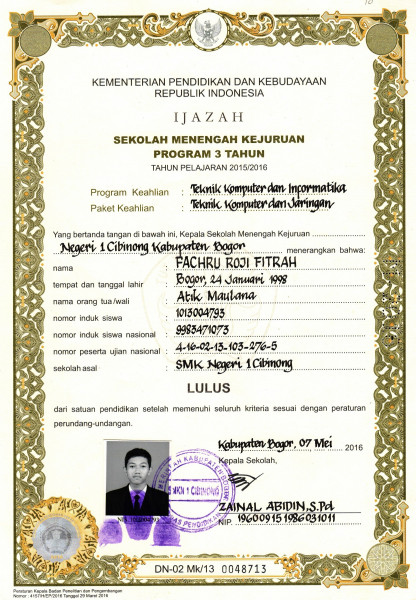 KEMENTERIAN PENDIDIKAN DAN KEBUDAYAAN
REPUBLIK INDONESIA
IJAZAH
SEKOLAH MENENGAH KEJURUAN
PROGRAM 3 TAHUN
TAHUN PELAJARAN 2015/2016
Program Keahlian : Teknik Komputer dan Informatika
Paket Keahlian : Teknik Komputer dan Jaringan
Yang bertanda tangan di bawah ini, Kepala Sekolah Menengah Kejuruan
Negeri 1 Cibinong Kabupaten Bogor menerangkan bahwa:
nama : FACHRU ROJI FITRAH
tempat dan tanggal lahir : Bogor, 24 Januari 1998
nama orang tua/wali : Atik Maulana
nomor induk siswa : 1013004793
nomor induk siswa nasional : 9983471073
nomor peserta ujian nasional : 4-16-02-13-103-276-5
sekolah asal : SMK Negeri 1 Cibinong
LULUS
dari satuan pendidikan setelah memenuhi seluruh kriteria sesuai dengan peraturan
perundang-undangan.
Kabupaten Bogor, 07 Mei 2016
Kepala Sekolah,
SMKN 1 CIBINONG
ZAINAL ABIDIN, S.Pd
NIP. 196009151986031011
DN-02 Mk/13 0048713
Peraturan Kepala Badan Penelitian dan Pengembangan